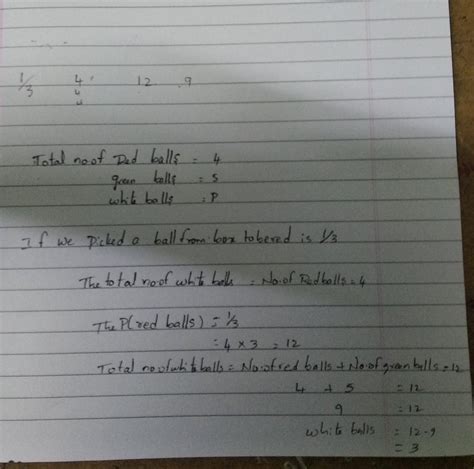 1/3 4 12 9
4
Total no of Red balls = 4
green balls = 5
white balls : P
If we picked a ball from box to be red is 1/3
The total no of white balls = No. of Red balls = 4
The P(red balls) = 1/3
= 4 x 3 = 12
Total no of white balls = No. of red balls + No. of green balls = 12
4 + 5 = 12
9 = 12
white balls = 12 - 9
= 3